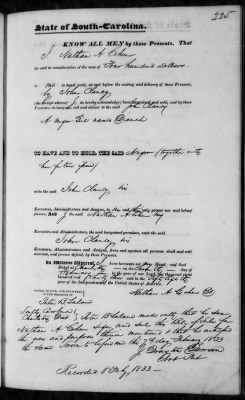 225
State of South-Carolina.
KNOW ALL MEN by these Presents, That
I, Nathan A Cohen
for and in consideration of the sum of Four hundred Dollars
to me in hand paid, at and before the sealing and delivery of these Presents,
by John Clancy
(the receipt whereof I do hereby acknowledge) have bargained and sold, and by these
Presents, do bargain, sell and deliver to the said John Clancy
A negro Girl named
TO HAVE AND TO HOLD, THE SAID Negro (together with
her future issue)
unto the said John Clancy, his
Executors, Administrators and Assigns, to his and their only proper use and behoof
forever. And I the said Nathan A Cohen my
Executors, Administrators, the said bargained premises, unto the said
John Clancy, his
Executors, Administrators and Assigns, from and against all persons shall and will
warrant, and forever defend, by these Presents.
In Witness Whereof, I have hereunto set my Hand and Seal
Dated at
in the year of our Lord one thousand eight
hundred and
the Independence of the United States of America.
SIGNED, SEALED, AND DELIVERED
IN THE PRESENCE OF
Nathan A Cohen
South Carolina
made oath that he saw
Nathan A Cohen sign and seal the
the uses and purposes therein mentioned & that he
the same Sworn to before me the 7th day February 1833
Not. Pub.
Recorded 8 Feby 1833